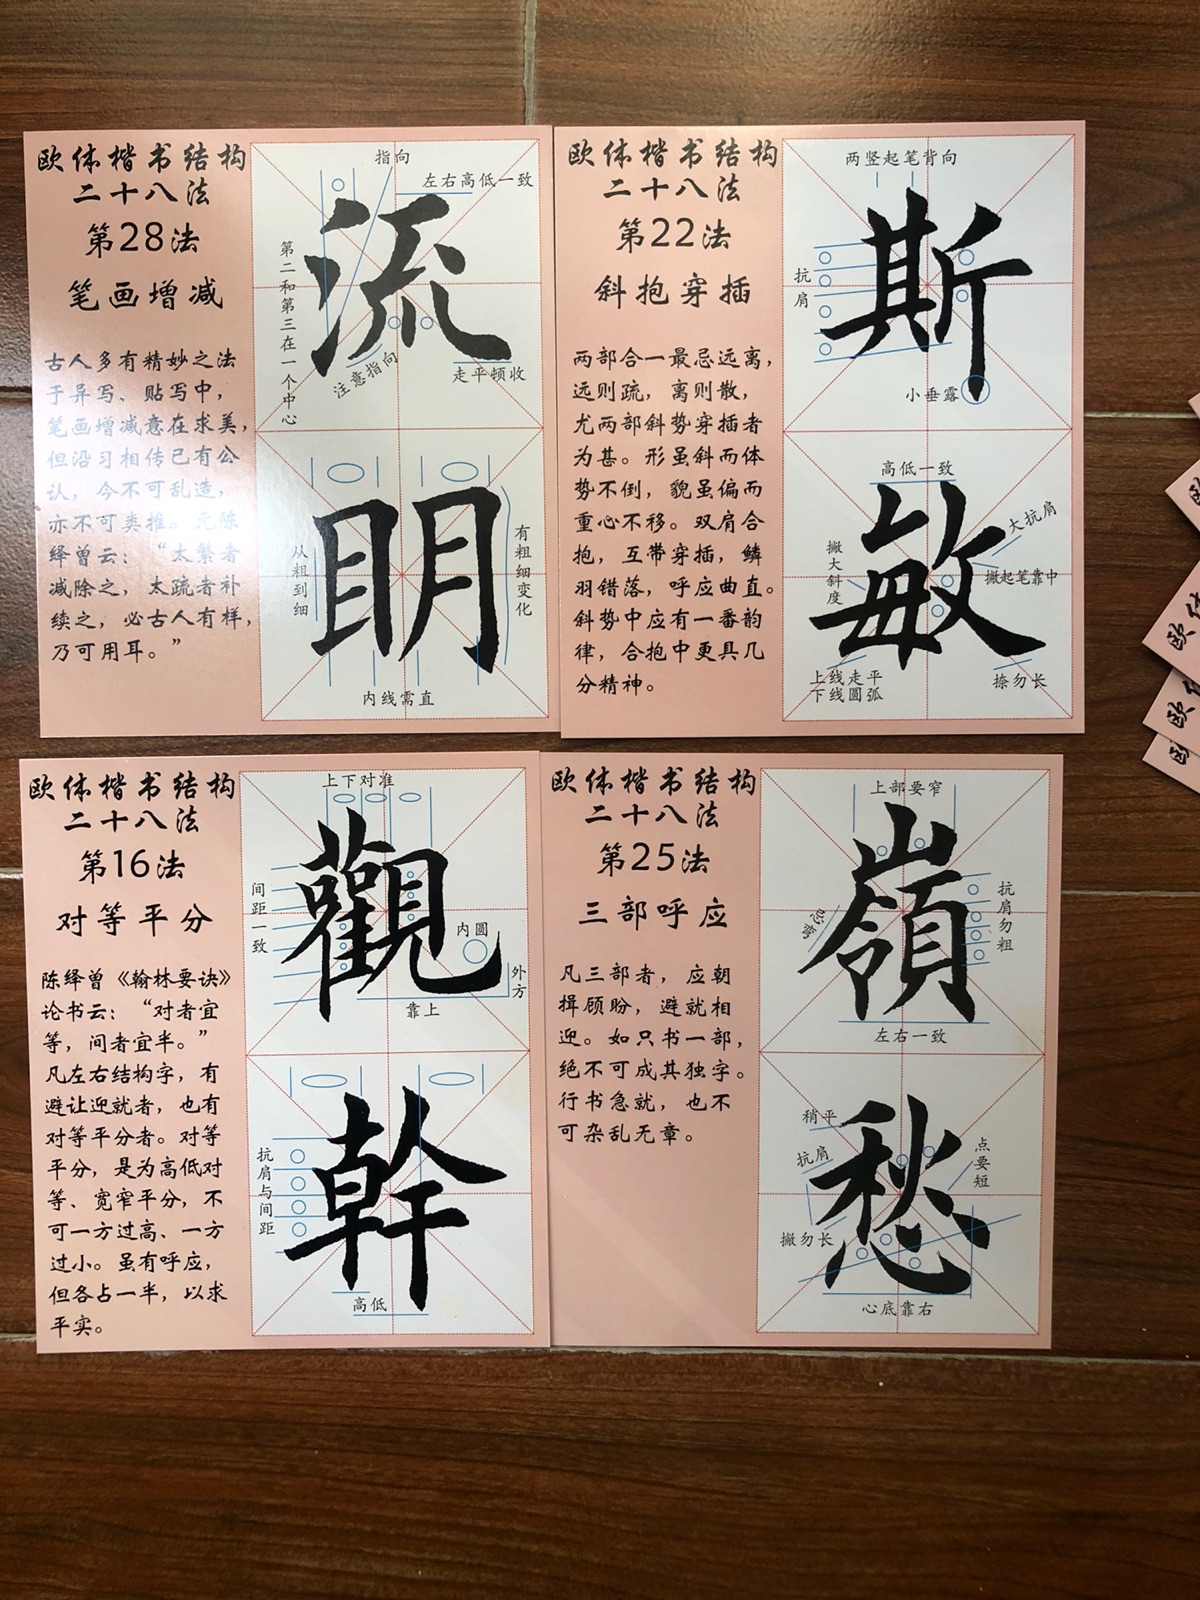 欧体楷书结构
二十八法
第28法
笔画增减
古人多有精妙之法
于异写、贴写中，
笔画增减意在求美，
但沿习相传已有公
认，今不可乱造，
亦不可类推。元陈
绎曾云：“太繁者
减除之，太疏者补
续之，必古人有样，
乃可用耳。”
指向
左右高低一致
第二和第三在一个中心
流
注意指向
走平顿收
从粗到细
明
有粗细变化
内线需直
欧体楷书结构
二十八法
第22法
斜抱穿插
两部合一最忌远离，
远则疏，离则散，
尤两部斜势穿插者
为甚。形虽斜而体
势不倒，貌虽偏而
重心不移。双肩合
抱，互带穿插，鳞
羽错落，呼应曲直。
斜势中应有一番韵
律，合抱中更具几
分精神。
两竖起笔背向
抗肩
斯
小垂露
高低一致
大抗肩
撇大斜度
敏
撇起笔靠中
上线走平
下线圆弧
捺勿长
欧体楷书结构
二十八法
第16法
对等平分
陈绎曾《翰林要诀》
论书云：“对者宜
等，间者宜半。”
凡左右结构字，有
避让迎就者，也有
对等平分者。对等
平分，是为高低对
等、宽窄平分，不
可一方过高、一方
过小。虽有呼应，
但各占一半，以求
平实。
上下对准
间距一致
觀
内圆
外方
靠上
抗肩与间距
幹
高低
欧体楷书结构
二十八法
第25法
三部呼应
凡三部者，应朝
揖顾盼，避就相
迎。如只书一部，
绝不可成其独字。
行书急就，也不
可杂乱无章。
上部要窄
嶺
抗肩勿粗
左右一致
稍平
抗肩
愁
点要短
撇勿长
心底靠右
欧
欧体
欧体
欧